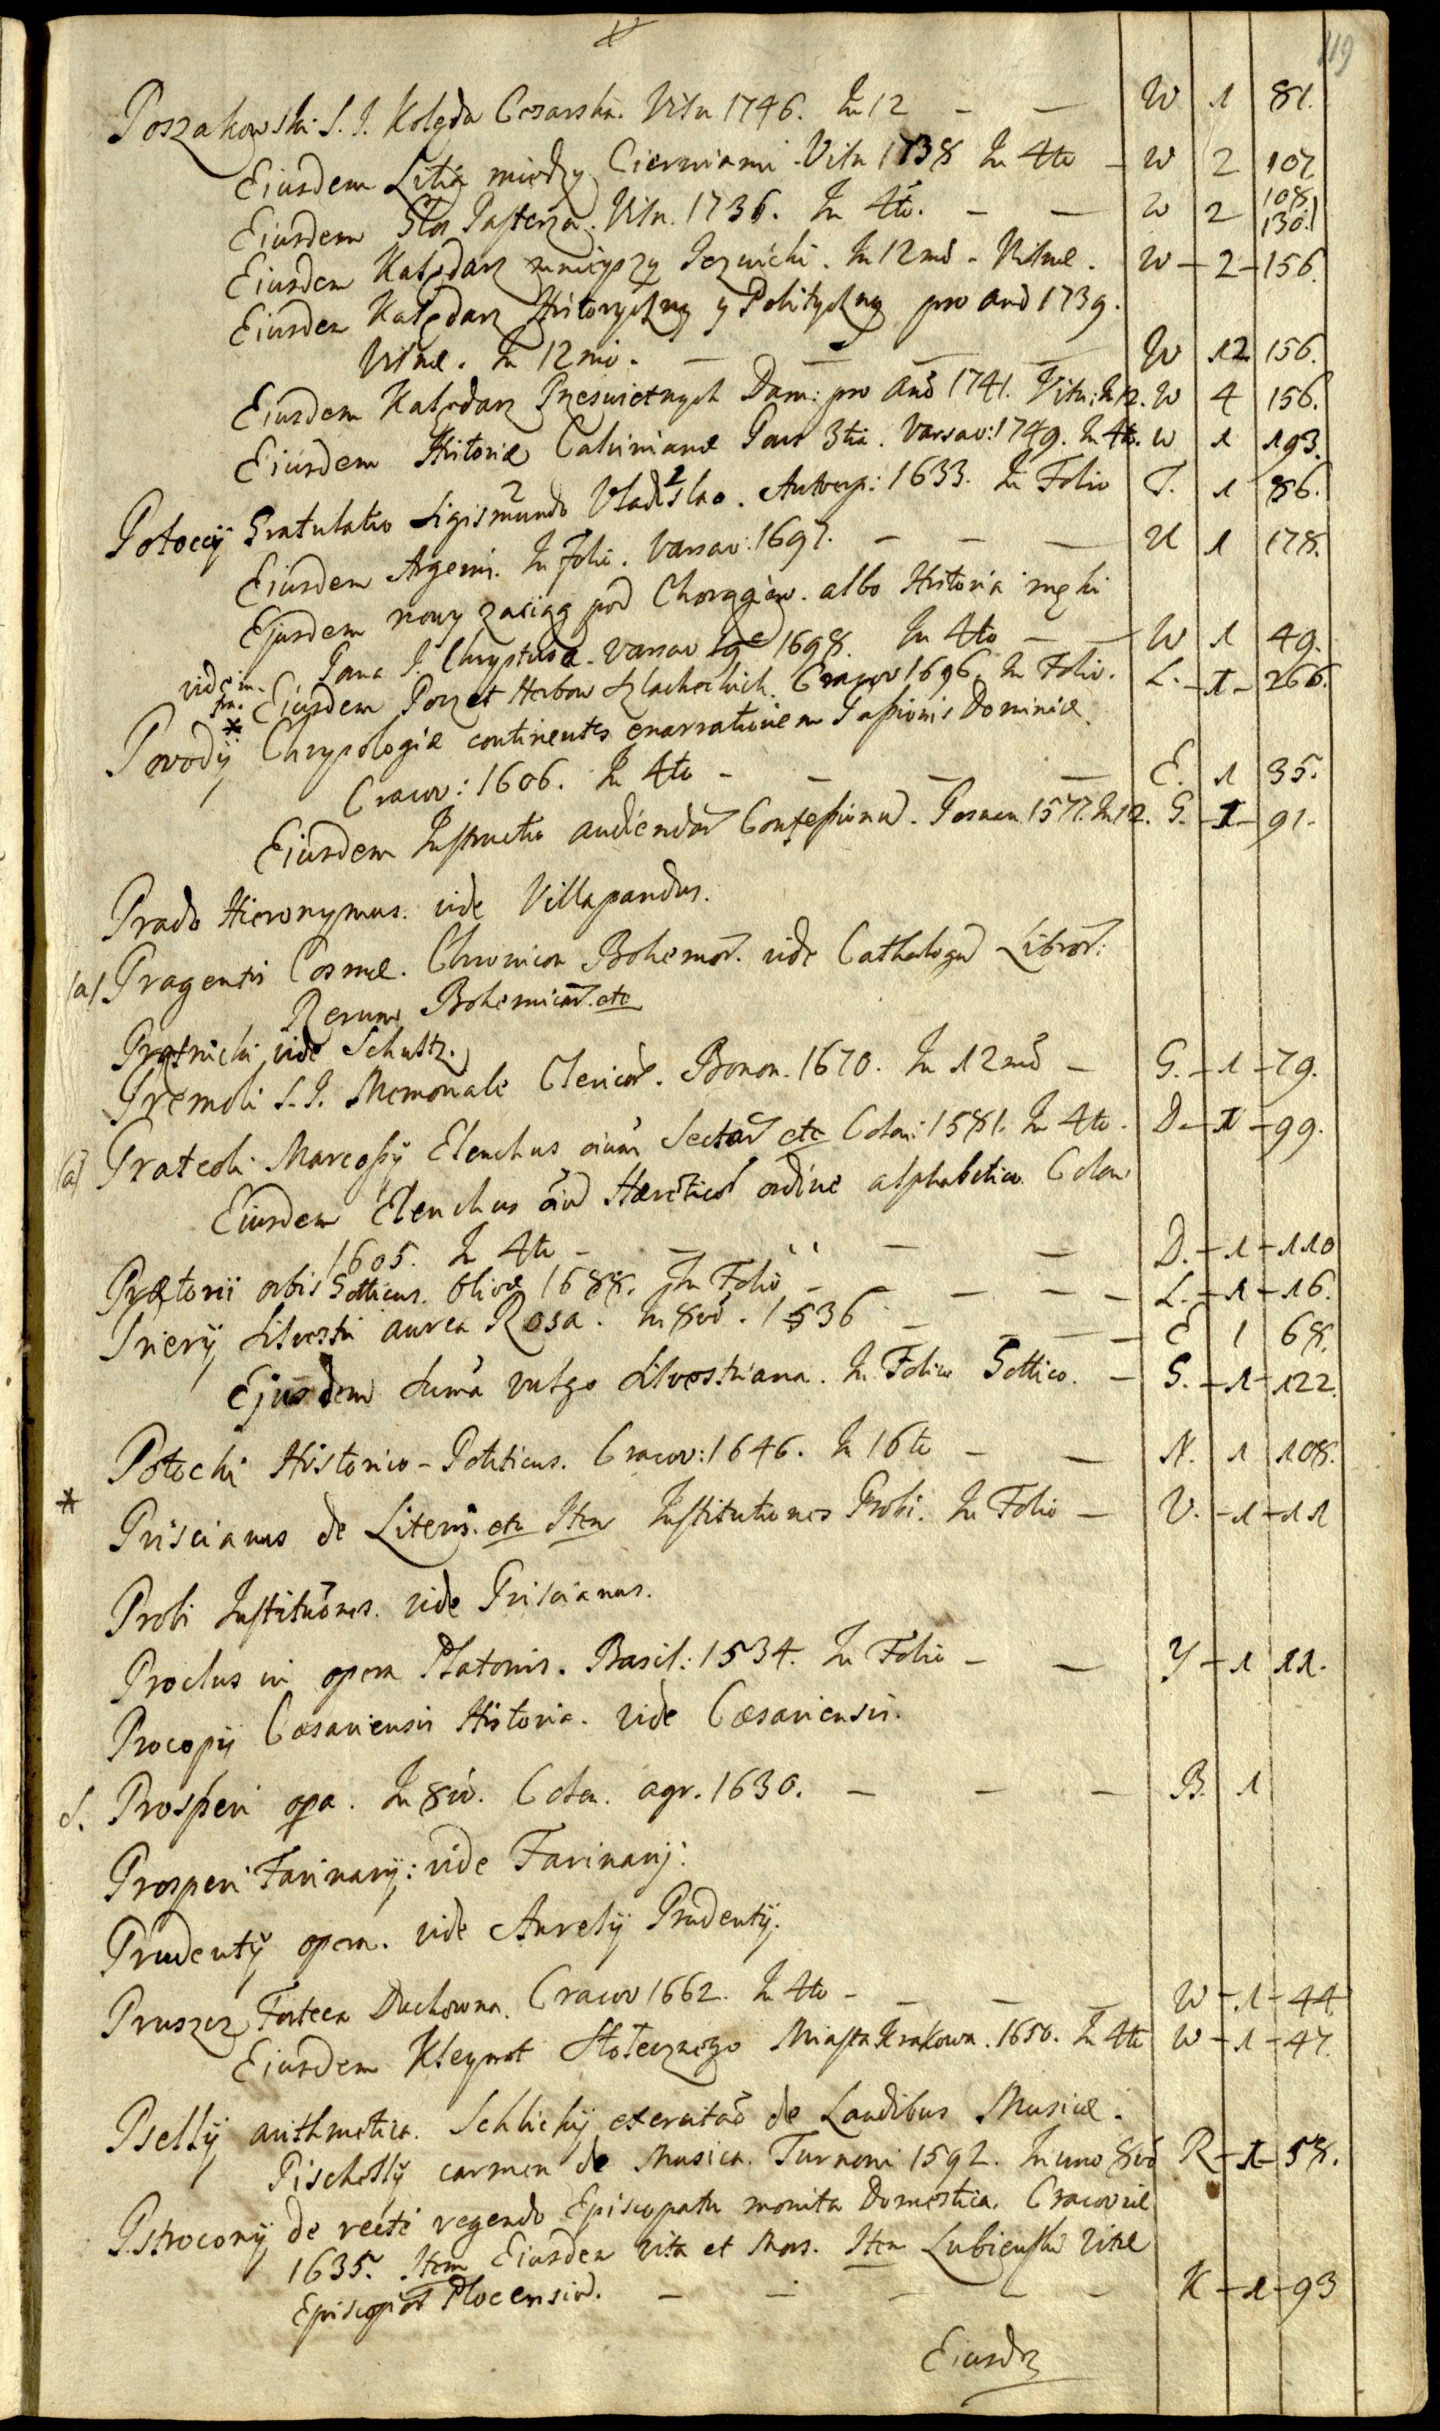 119
Poszakowski S. J. Kolęda Cesarska. Viln 1746. In 12 — — W 1 81.
Eiusdem Lilia między Cierniami. Viln 1738 In 4to — W 2 107
Eiusdem Głos Pasterza. Viln. 1736. In 4to. — — W 2 108 130.
Eiusdem Kalędarz Jezuicki. In 12mo - Vilnæ. W - 2 - 156
Eiusdem Kalędarz Historyczny y Polityczny pro Ano 1739.
Vilnæ. In 12mo. — — — — W 12 156.
Eiusdem Kalędarz Przeswietnych Dam: pro Ano 1741. Viln: In 12. W 4 156.
Eiusdem Historiæ Calvinianæ Pars 3tia. Varsav: 1749. In 4to. W 1 193.
Potoccij Gratulatio Sigismundo Vladislao. Antverp: 1633. In Folio T. 1 86.
Eiusdem Argenis. In folio. Varsav: 1697. — — — U 1 178.
Ejusdem nowy zaciąg pod Chorągiew. albo Historia męki
Pana J. Chrystusa. Varsav 1698. In 4to — — W 1 49.
vide in. Eiusdem Poczet Herbow Szlacheckich. Cracov 1696. In Folio. L. - 1 - 266.
fin. *
Povodij Chrypologiæ continentis enarrationem Passionis Dominicæ.
Cracov: 1606. In 4to — — — — E. 1 35.
Eiusdem Instructio audiendar Confessionu. Posnan 1577. In 12. G. - 1 - 91.
Prado Hieronymus. vide Villapandus.
(a) Pragentis Cosmæ. Chronicon Bohemor. vide Cathalogu Libror:
Rerum Bohemicar. etc
Pratnicki vide Schultz.
Premoli S. J. Memoriale Clericor. Bonon. 1670. In 12mo — G. - 1 - 79.
(a) Prateoli Marcossij Elenchus oium Sectar etc Colon: 1581. In 4to. D. - 1 - 99.
Eiusdem Elenchus oiu Hæreticor ordine alphabetico Colon
1605. In 4to — — — — D. - 1 - 110
Prætorii orbis Gotticus. Olivæ 1688. In Folio — — — — L. - 1 - 16.
Prierij Silvestri aurea Rosa. In 8vo. 1536 — — — E 1 68.
Ejusdem Suma vulgo Silvestriana. In Folio Gottico. — G. - 1 - 122.
Potocki Historico - Politicus. Cracov: 1646. In 16to — — N. 1 108.
* Priscianus de Literis. etc Item Institutiones Probi. In Folio — V. - 1 - 11
Probi Institutiones. vide Priscianus.
Proclus in opera Platonis. Basil: 1534. In Folio — — Y - 1 11.
Procopij Cæsariensis Historia. vide Cæsariensis.
S. Prosperi opa. In 8vo. Colon. agr. 1630. — — — B. 1
Prosperi Farinarij: vide Farinarij.
Prudentij opera. vide Aurelij Prudentij.
Pruszcz Forteca Duchowna. Cracov 1662. In 4to — — — — W - 1 - 44
Eiusdem Kleynot Stołecznego Miasta Krakowa. 1650. In 4to W - 1 - 47.
Psellij arithmetica. Schlichij exercitao de Laudibus Musicæ.
Pischellij carmen de Musica. Turnoni 1592. In uno 8vo R - 1 - 58.
Pstroconij de recte regendo Episcopatu monita Domestica. Cracoviæ
1635. Item Eiusdem vita et Mors. Item Lubienski Vitæ
Episcopor Plocensiu. — — — — — K - 1 - 93
Eiusd